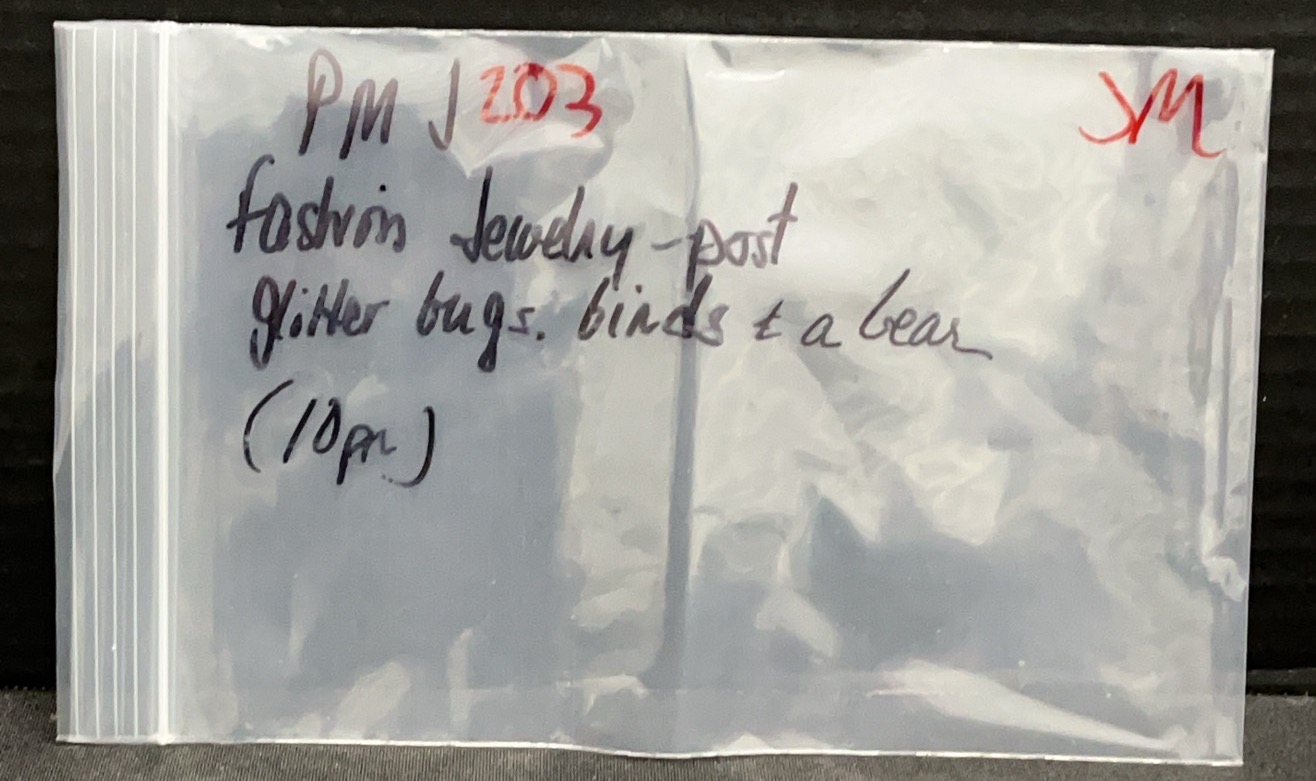 PM J 203 JM
fashion Jewelry - post
glitter bugs. birds & a bear
(10pr)